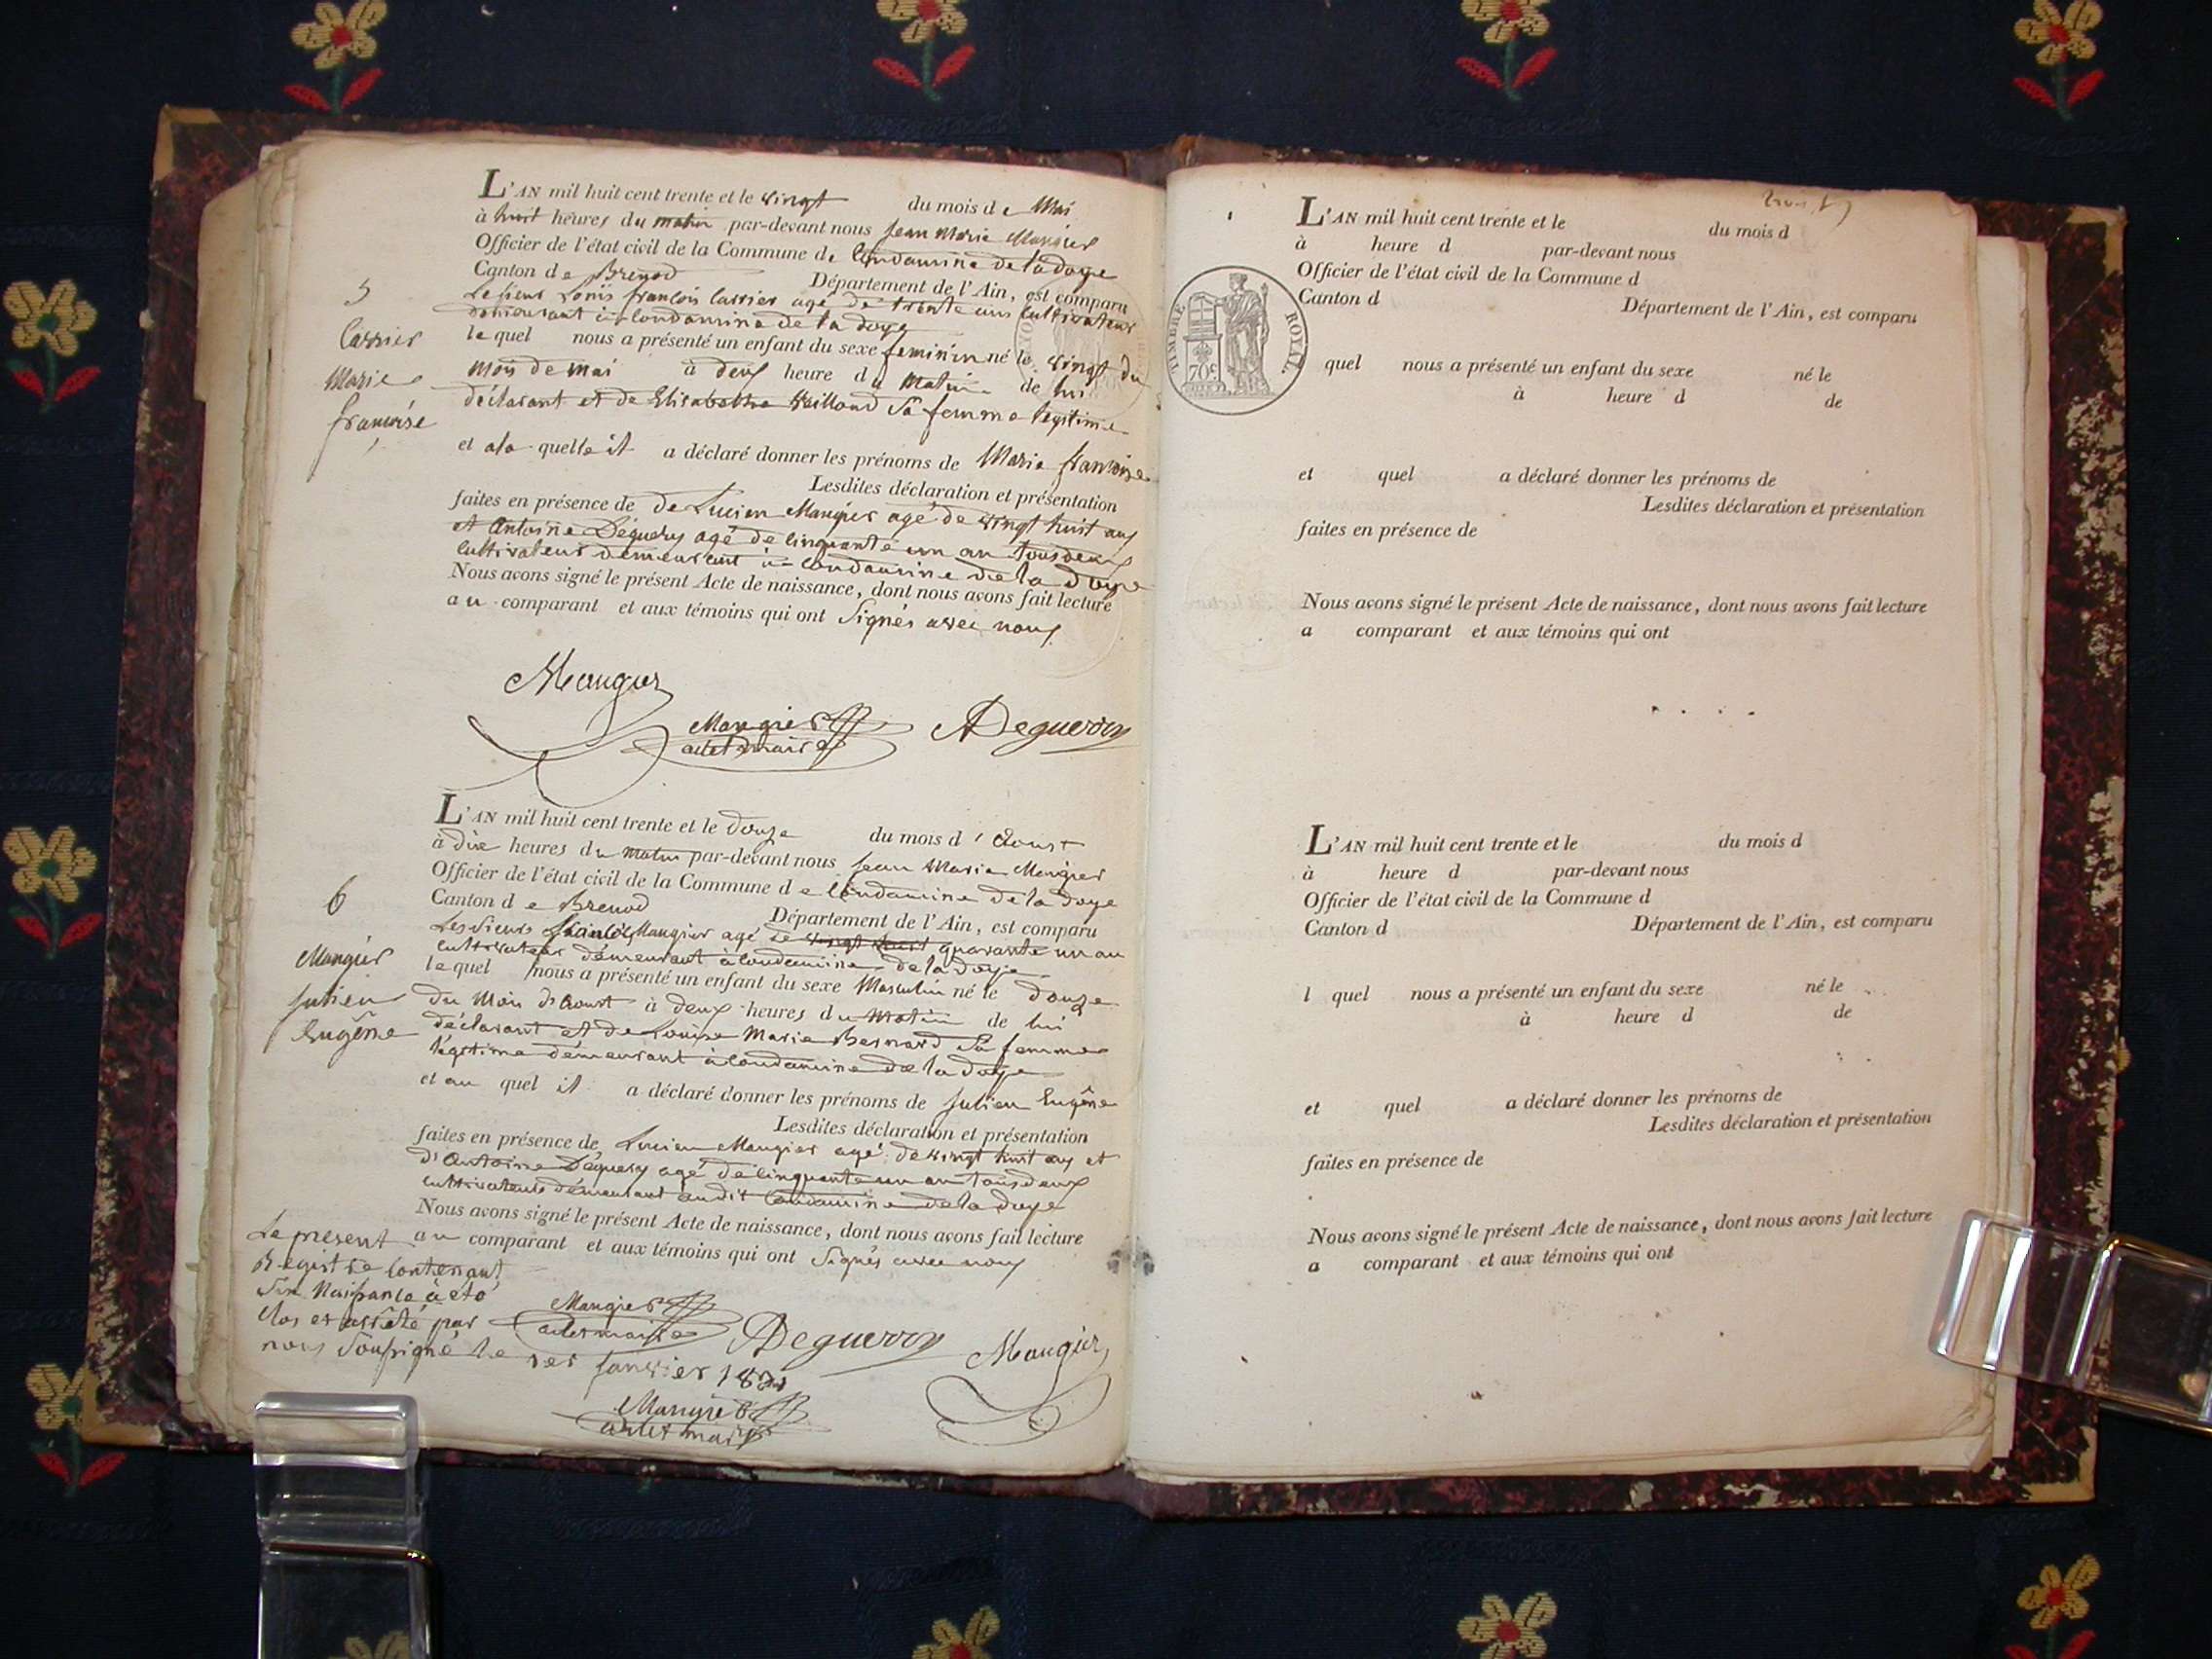 L'AN mil huit cent trente et le vingt du mois de Mai
à huit heures du matin par-devant nous Jean Marie Mangier
Officier de l'état civil de la Commune de Condamine de la doye
Canton de Brenod Département de l'Ain, est comparu
Le sieur Louis françois Carrier agé de trente ans Cultivateur
demeurant à Condamine de la doye
le quel nous a présenté un enfant du sexe feminin né le vingt du
mois de mai à deux heure du Matin de lui
déclarant et de Elisabethe Vaillond Sa femme legitime
et a la quelle il a déclaré donner les prénoms de Marie françoise
Lesdites déclaration et présentation
faites en présence de de Lucien Mangier agé de vingt huit ans
et Antoine Déguery agé de Cinquante un an tous deux
Cultivateurs demeurant à Condamine de la doye
Nous avons signé le présent Acte de naissance, dont nous avons fait lecture
au comparant et aux témoins qui ont Signés avec nous
5
Carrier
Marie
françoise
Mangier
Mangier
adet maire
ADeguerry
L'AN mil huit cent trente et le douze du mois d'Aoust
à dix heures du matin par-devant nous Jean Marie Mangier
Officier de l'état civil de la Commune de Condamine de la doye
Canton de Brenod Département de l'Ain, est comparu
Les Sieurs françois Mangier agé de vingt huit quarante un an
cultivateur demeurant à Condamine de la doye
le quel nous a présenté un enfant du sexe Masculin né le douze
du Mois d'Aoust à deux heures du Matin de lui
déclarant et de Louise Marie Bernard Sa femme
légitime demeurant à Condamine de la doye
et au quel il a déclaré donner les prénoms de Julien Eugêne
Lesdites déclaration et présentation
faites en présence de Lucien Mangier agé de vingt huit ans et
d'Antoine Déguery agé de Cinquante un an tous deux
cultivateurs demeurant audit Condamine de la doye
Nous avons signé le présent Acte de naissance, dont nous avons fait lecture
au comparant et aux témoins qui ont Signés avec nous
6
Mangier
Julien
Eugêne
Mangier
adet maire
ADeguerry
Mangier
Le present
Registre Contenant
Six Naissance à été
Clos et arrêté par
nous Soussigné le 1er Janvier
Mangier
adet maire
TIMBRE ROYAL
70c
L'AN mil huit cent trente et le du mois d
à heure d par-devant nous
Officier de l'état civil de la Commune d
Canton d Département de l'Ain, est comparu
quel nous a présenté un enfant du sexe né le
à heure d de
et quel a déclaré donner les prénoms de
Lesdites déclaration et présentation
faites en présence de
Nous avons signé le présent Acte de naissance, dont nous avons fait lecture
a comparant et aux témoins qui ont
L'AN mil huit cent trente et le du mois d
à heure d par-devant nous
Officier de l'état civil de la Commune d
Canton d Département de l'Ain, est comparu
l quel nous a présenté un enfant du sexe né le
à heure d de
et quel a déclaré donner les prénoms de
Lesdites déclaration et présentation
faites en présence de
Nous avons signé le présent Acte de naissance, dont nous avons fait lecture
a comparant et aux témoins qui ont